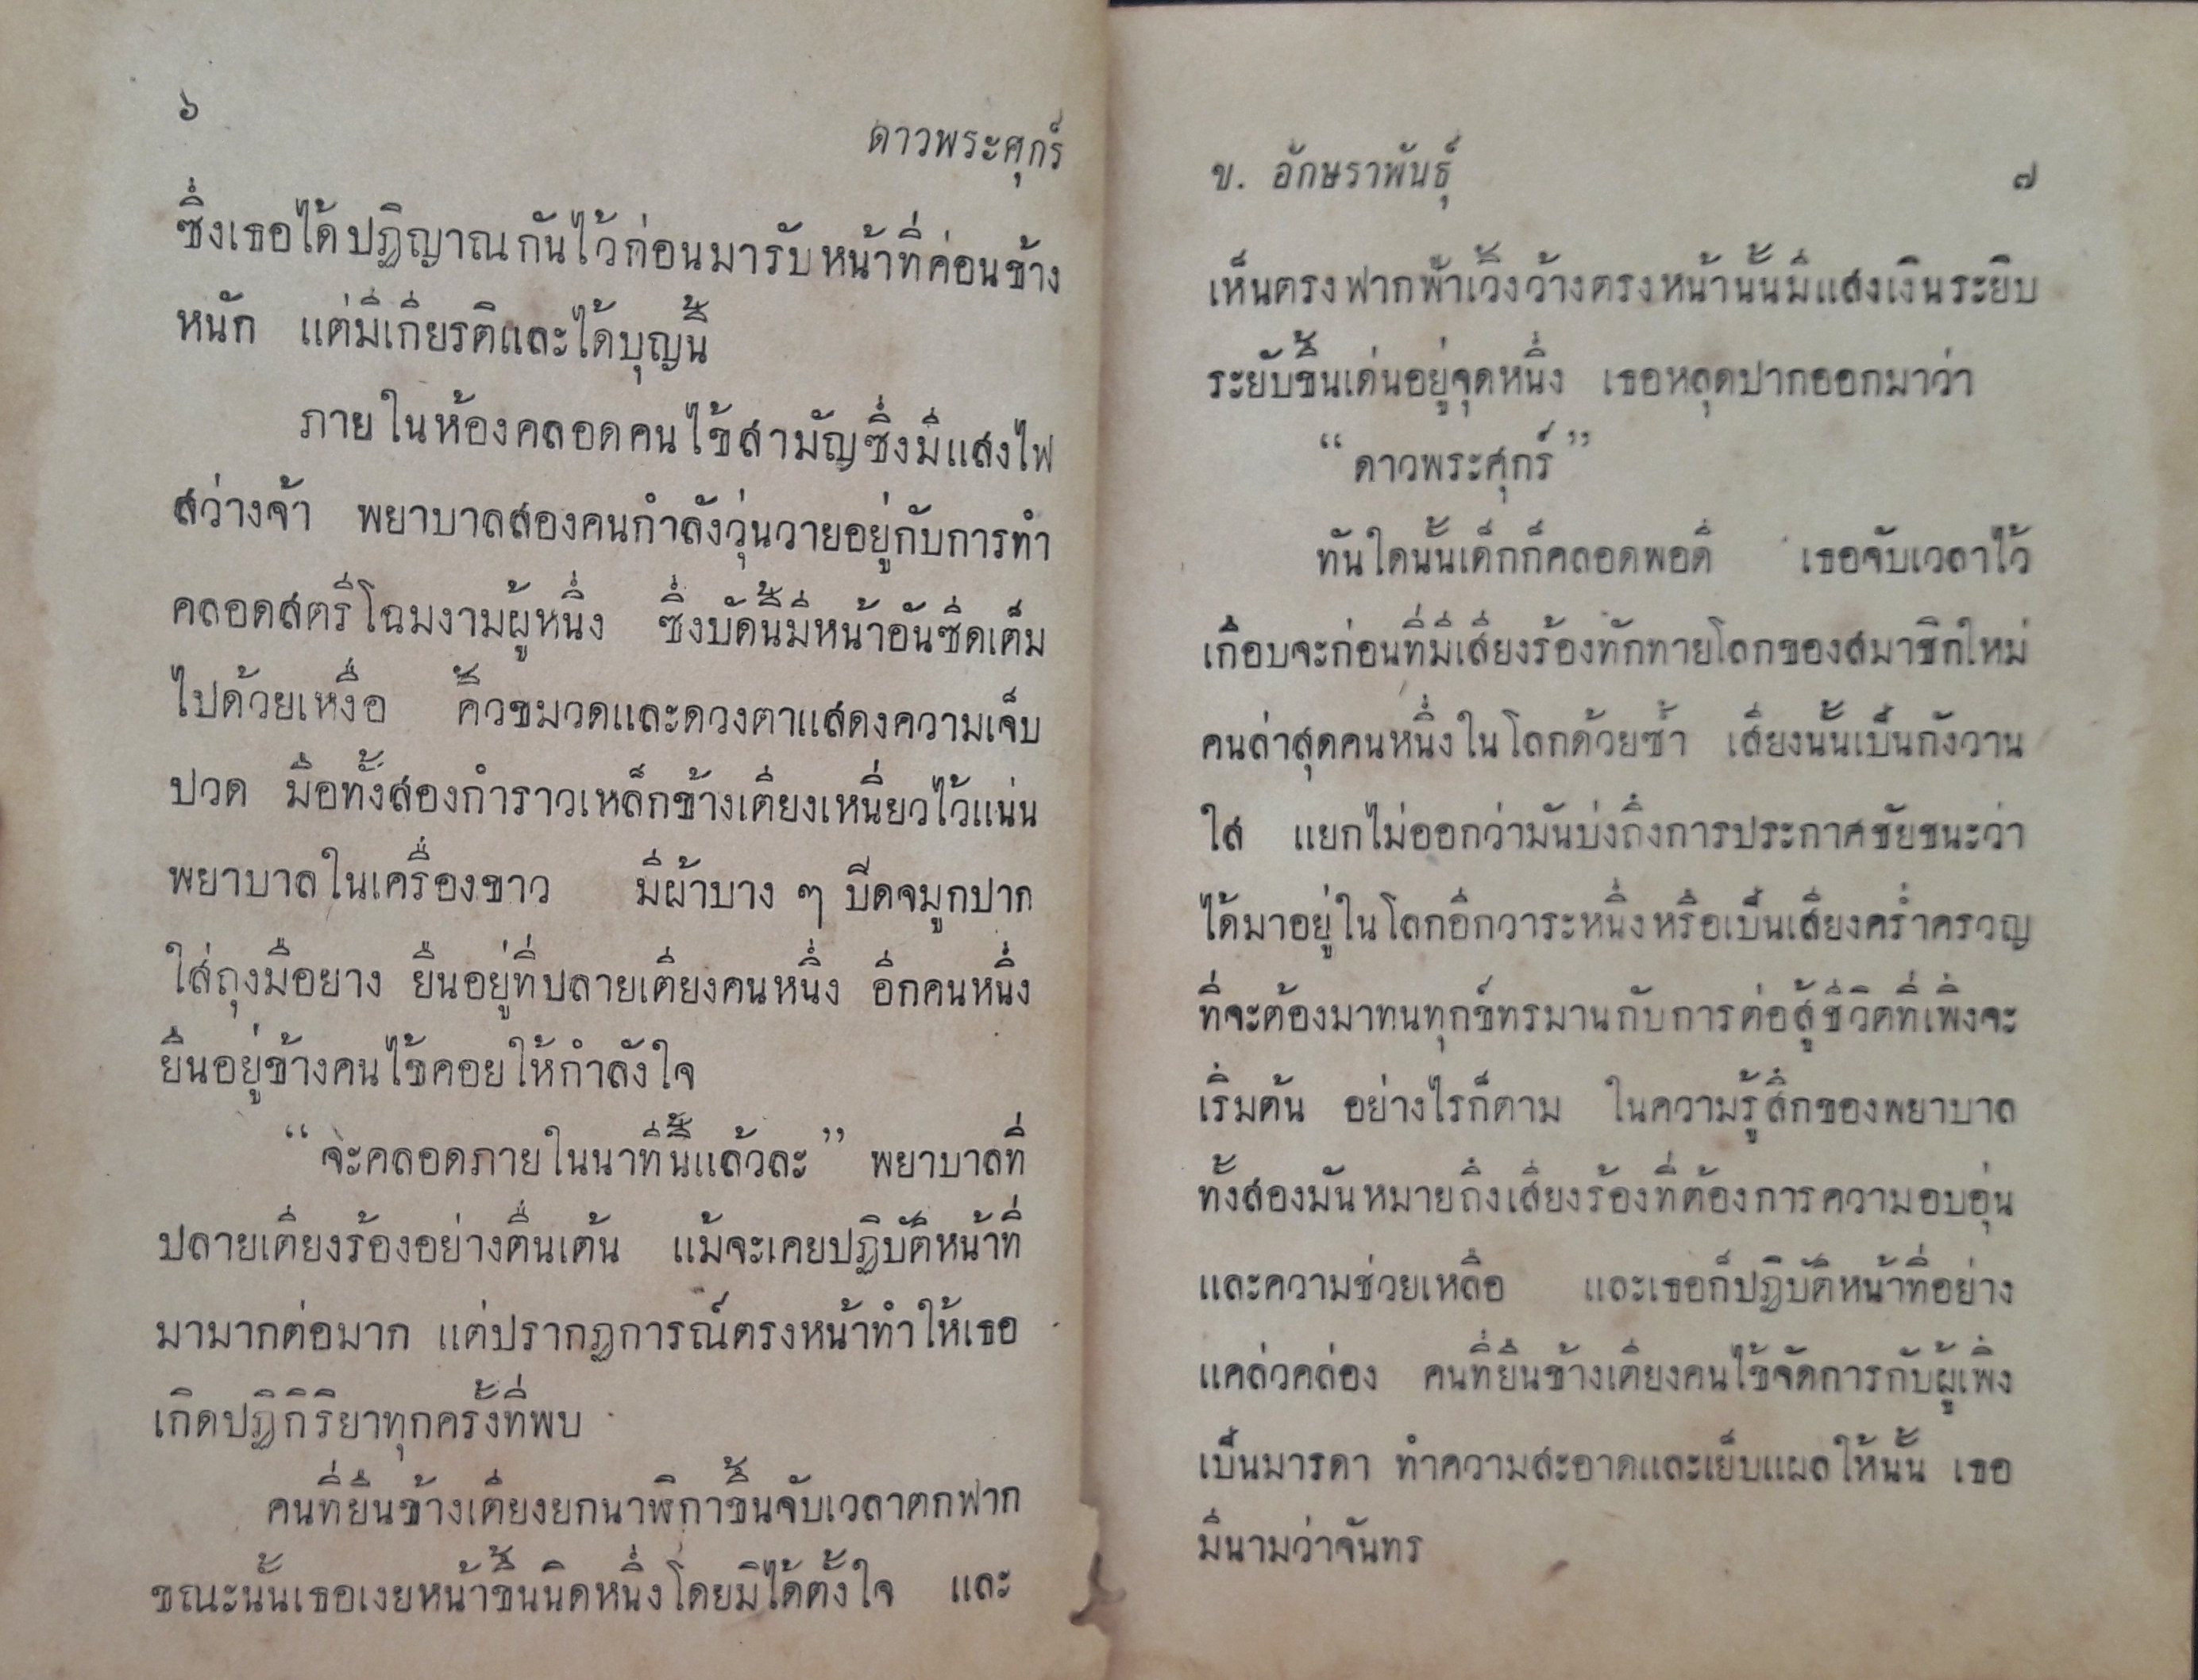 ๖
ดาวพระศุกร์
ซึ่งเธอได้ปฏิญาณกันไว้ก่อนมารับหน้าที่ค่อนข้าง
หนัก แต่มีเกียรติและได้บุญนี้
ภายในห้องคลอดคนไข้สามัญซึ่งมีแสงไฟ
สว่างจ้า พยาบาลสองคนกำลังวุ่นวายอยู่กับการทำ
คลอดสตรีโฉมงามผู้หนึ่ง ซึ่งบัดนี้มีหน้าอันซีดเต็ม
ไปด้วยเหงื่อ คิ้วขมวดและดวงตาแสดงความเจ็บ
ปวด มือทั้งสองกำราวเหล็กข้างเตียงเหนี่ยวไว้แน่น
พยาบาลในเครื่องขาว มีผ้าบาง ๆ ปิดจมูกปาก
ใส่ถุงมือยาง ยืนอยู่ที่ปลายเตียงคนหนึ่ง อีกคนหนึ่ง
ยืนอยู่ข้างคนไข้คอยให้กำลังใจ
“จะคลอดภายในนาทีนี้แล้วละ” พยาบาลที่
ปลายเตียงร้องอย่างตื่นเต้น แม้จะเคยปฏิบัติหน้าที่
มามากต่อมาก แต่ปรากฏการณ์ตรงหน้าทำให้เธอ
เกิดปฏิกิริยาทุกครั้งที่พบ
คนที่ยืนข้างเตียงยกนาฬิกาขึ้นจับเวลาตกฟาก
ขณะนั้นเธอเงยหน้าขึ้นนิดหนึ่งโดยมิได้ตั้งใจ และ
ข. อักษราพันธุ์
๗
เห็นตรงฟากฟ้าเวิ้งว้างตรงหน้านั้นมีแสงเงินระยิบ
ระยับขึ้นเด่นอยู่จุดหนึ่ง เธอหลุดปากออกมาว่า
“ดาวพระศุกร์”
ทันใดนั้นเด็กก็คลอดพอดี เธอจับเวลาไว้
เกือบจะก่อนที่มีเสียงร้องทักทายโลกของสมาชิกใหม่
คนล่าสุดคนหนึ่งในโลกด้วยซ้ำ เสียงนั้นเป็นกังวาน
ใส แยกไม่ออกว่ามันบ่งถึงการประกาศชัยชนะว่า
ได้มาอยู่ในโลกอีกวาระหนึ่งหรือเป็นเสียงคร่ำครวญ
ที่จะต้องมาทนทุกข์ทรมานกับการต่อสู้ชีวิตที่เพิ่งจะ
เริ่มต้น อย่างไรก็ตาม ในความรู้สึกของพยาบาล
ทั้งสองมันหมายถึงเสียงร้องที่ต้องการความอบอุ่น
และความช่วยเหลือ และเธอก็ปฏิบัติหน้าที่อย่าง
แคล่วคล่อง คนที่ยืนข้างเตียงคนไข้จัดการกับผู้เพิ่ง
เป็นมารดา ทำความสะอาดและเย็บแผลให้นั้น เธอ
มีนามว่าจันทร